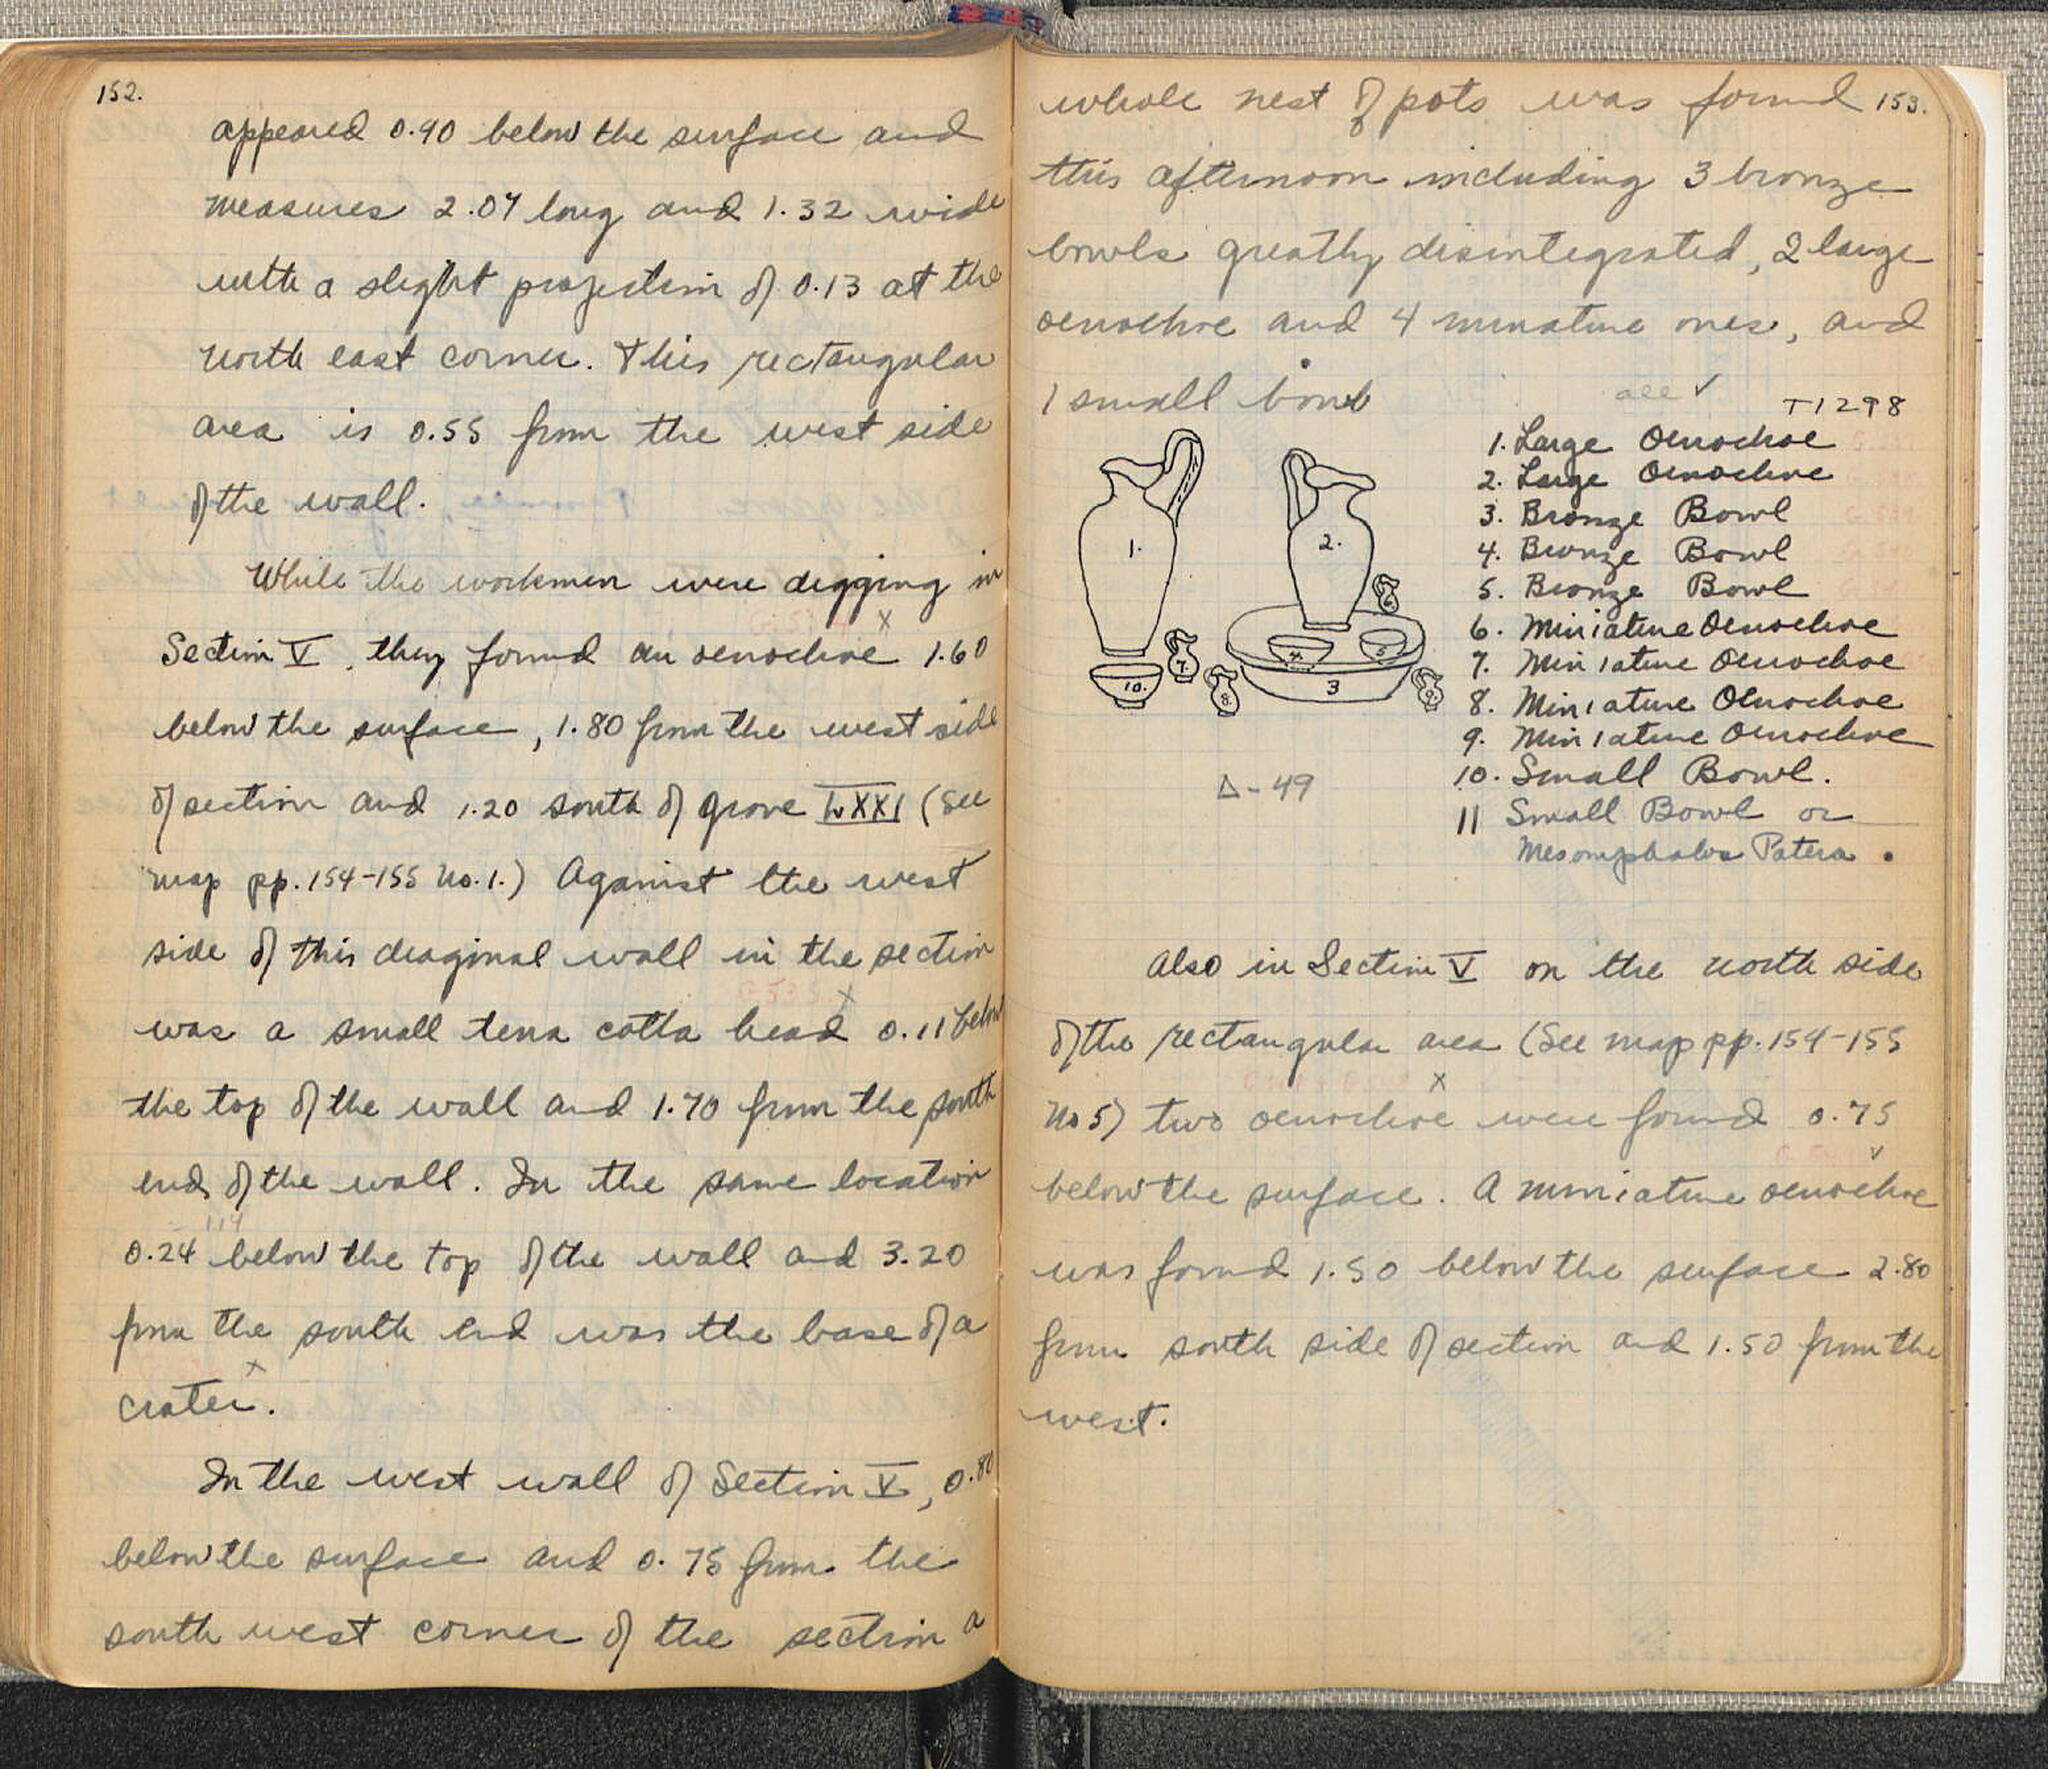 152.
appeared 0.90 below the surface and
measures 2.07 long and 1.32 wide
with a slight projection of 0.13 at the
north east corner. This rectangular
area is 0.55 from the west side
of the wall.
While the workmen were digging in
Section V, they found an oenochoe 1.60
below the surface, 1.80 from the west side
of section and 1.20 south of grave LXXI (See
map pp. 154-155 No. 1.) Against the west
side of this diaginal wall in the section
was a small terra cotta head 0.11 below
the top of the wall and 1.70 from the south
end of the wall. In the same location
0.24 below the top of the wall and 3.20
from the south end was the base of a
crater.
In the west wall of Section V, 0.80
below the surface and 0.75 from the
south west corner of the section a
whole nest of pots was found 153.
this afternoon including 3 bronze
bowls greatly disintegrated, 2 large
oenochoe and 4 minature ones, and
1 small bowl
all ✓
T1298
1. Large Oenochoe
2. Large Oenochoe
3. Bronze Bowl
4. Bronze Bowl
5. Bronze Bowl
6. Miniature Oenochoe
7. Miniature Oenochoe
8. Miniature Oenochoe
9. Miniature Oenochoe
10. Small Bowl.
11 Small Bowl or
Mesomphalos Patera.
1.
2.
3
4.
5
6
7
8
9
10.
Δ-49
Also in Section V on the north side
of the rectangular area (See map pp. 154-155
No 5) two oenochoe were found 0.75
below the surface. A miniature oenochoe
was found 1.50 below the surface 2.80
from south side of section and 1.50 from the
west.